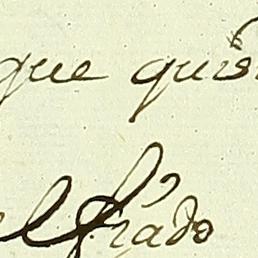 que quis
el frado